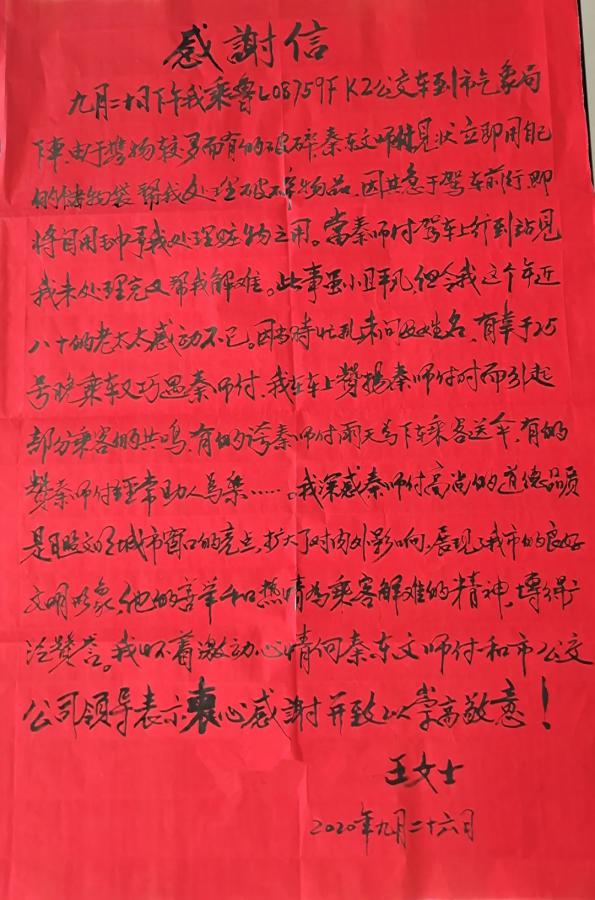 感謝信
九月二十日下午我乘魯L08759F K2公交车到市气象局
下車,由于携物较多而有的破碎,秦东文师付见状立即用自己
的储物袋帮我处理破碎物品,因其急于驾车前行即
将自用毛巾予我处理赃物之用。當秦师付驾车上行到站见
我未处理完又帮我解难。此事虽小且平凡,但令我这个年近
八十的老太太感动不已。因当时忙乱未问及姓名,有幸于25
号晚乘车又巧遇秦师付,我在车上赞揚秦师付时而引起
部分乘客的共鸣,有的夸秦师付雨天为下车乘客送伞,有的
赞秦师付经常助人為樂……。我深感秦师付高尚的道德品质
是日照文明城市窗口的亮点,扩大了对内外影响,展现了我市的良好
文明形象,他的善举和热情為乘客解难的精神,博得广
泛赞誉。我怀着激动心情向秦东文师付和市公交
公司领导表示衷心感謝并致以崇高敬意!
王女士
2020年九月二十六日